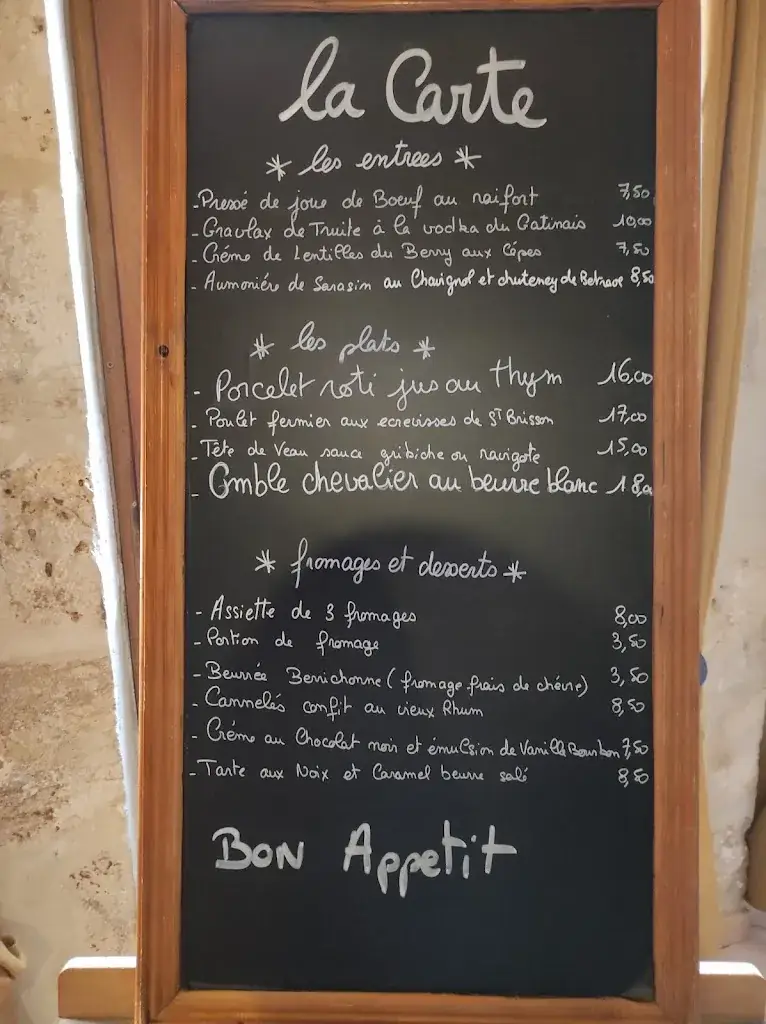 la Carte
* les entrees *
- Pressé de joue de Boeuf au raifort 7,50
- Gravlax de Truite à la vodka du Gatinais 10,00
- Créme de Lentilles du Berry aux Cépes 7,50
- Aumoniére de Sarasin au Chavignol et chuteney de Betrave 8,50
* les plats *
- Porcelet roti jus au thym 16,00
- Poulet fermier aux ecrevisses de ST Brisson 17,00
- Tête de Veau sauce gribiche ou ravigote 15,00
- Omble chevalier au beurre blanc 18,00
* fromages et desserts *
- Assiette de 3 fromages 8,00
- Portion de fromage 3,50
- Beurrée Berrichonne (fromage frais de chévre) 3,50
- Cannelés confit au vieux Rhum 8,50
- Créme au Chocolat noir et émulsion de Vanille Bourbon 7,50
- Tarte aux Noix et Caramel beurre salé 8,50
BON Appetit